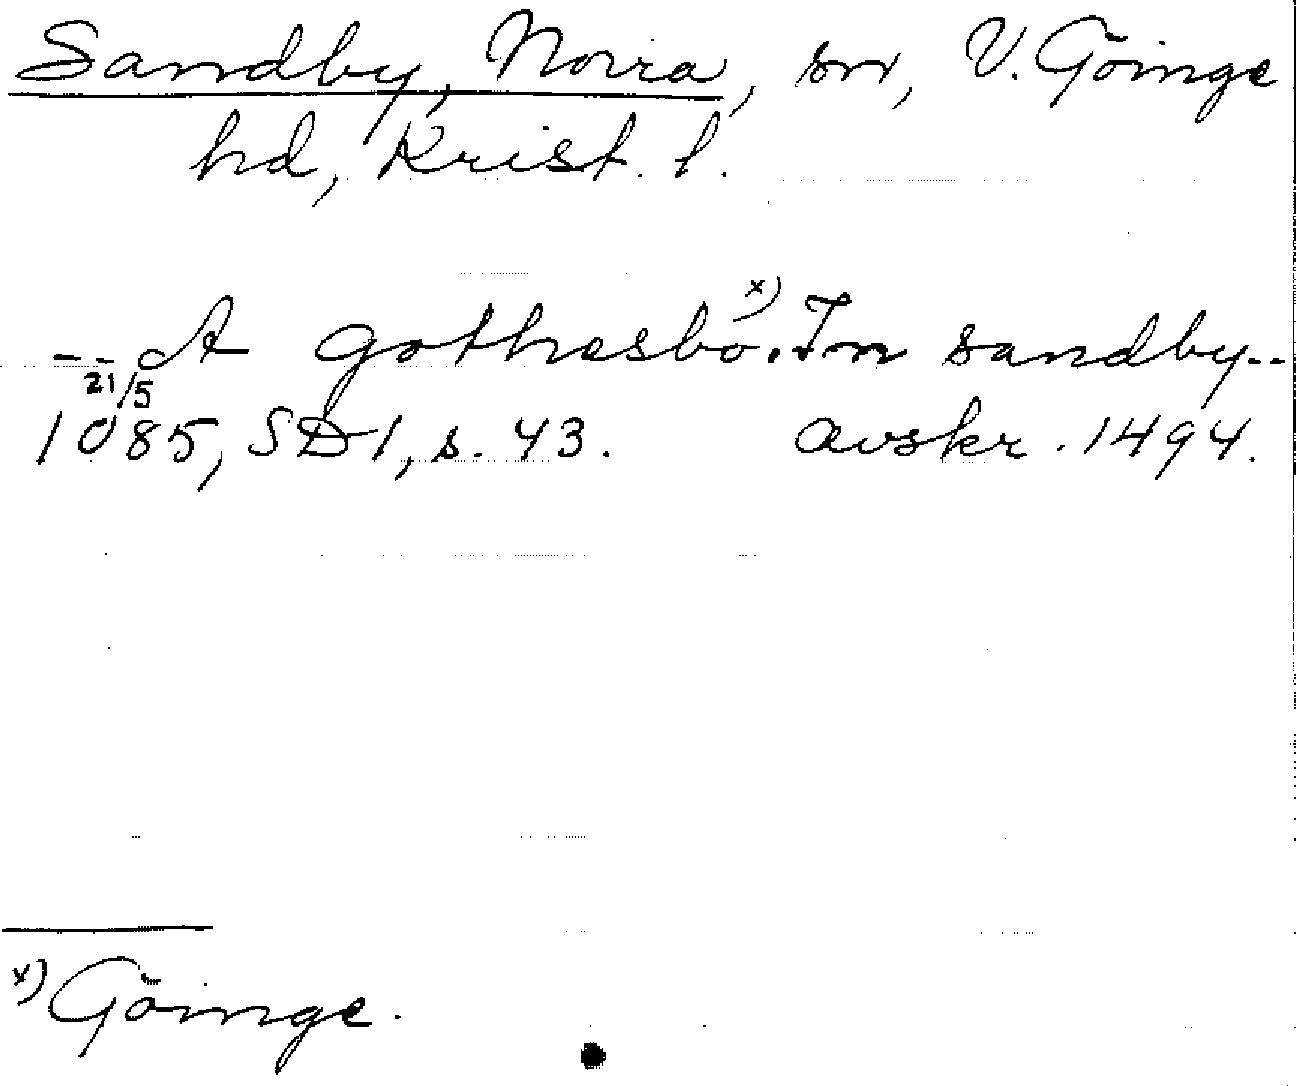 Sandby, Norra, sn, V. Göinge
hd, Krist. l.
-- A gothesbo.x) In sandby--
21/5
1085, SD1, s. 43. avskr. 1494.
x) Göinge.